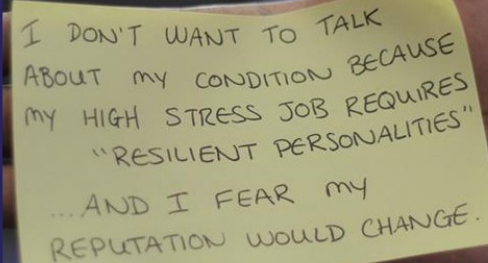 I DON'T WANT TO TALK
ABOUT MY CONDITION BECAUSE
MY HIGH STRESS JOB REQUIRES
"RESILIENT PERSONALITIES"
...AND I FEAR MY
REPUTATION WOULD CHANGE.